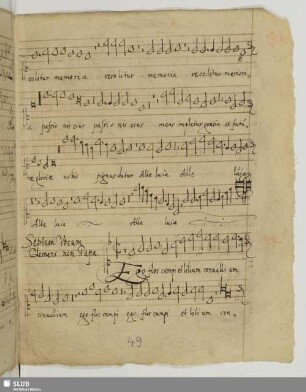 recolitur memoria recolitur memoria recolitur memori
a passio nis eius passio nis eius mens impletur gratia et futu
re glorie nobis pignus datur Alle luia Alle luia
Alle luia Alle luia
Septem Vocum
Clemens non Papa
Ego flos campi et lilium convallium
convallium ego flos campi ego flos campi et lilium con
49
SLUB
Wir führen Wissen.